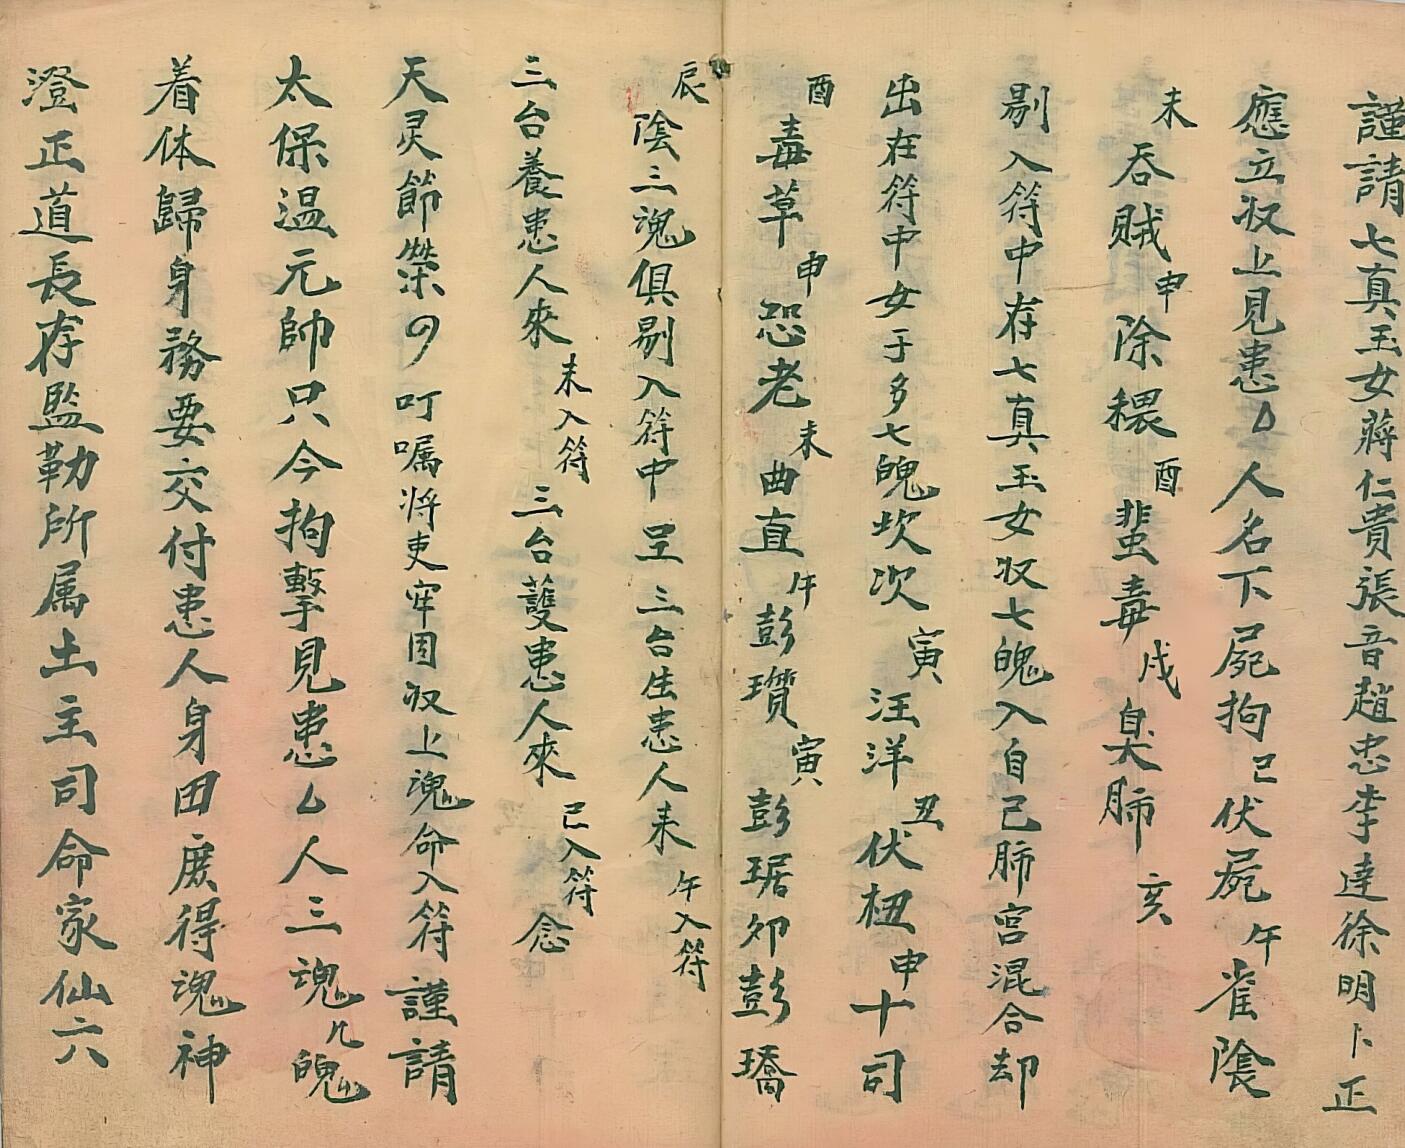 謹請七真玉女蔣仁貴張音趙忠李達徐明卜正
應立収上見患厶人名下屍拘已伏屍午雀陰
未吞賊申除穢酉蜚毒戌臭肺亥
剔入符中存七真玉女収七魄入自己肺宮混合却
出在符中女于多七魄坎次寅汪洋丑伏杻申十司
酉毒草申恐老未曲直午彭瓚寅彭琚卯彭璚
辰陰三魂俱剔入符中呈三台生患人来午入符
三台養患人來未入符三台護患人來已入符念
天灵節榮叮嘱将吏牢固収上魂命入符謹請
太保温元帥只今拘擊見患厶人三魂几魄
着体歸身務要交付患人身田庻得魂神
澄正道長存監勒所属土主司命家仙六